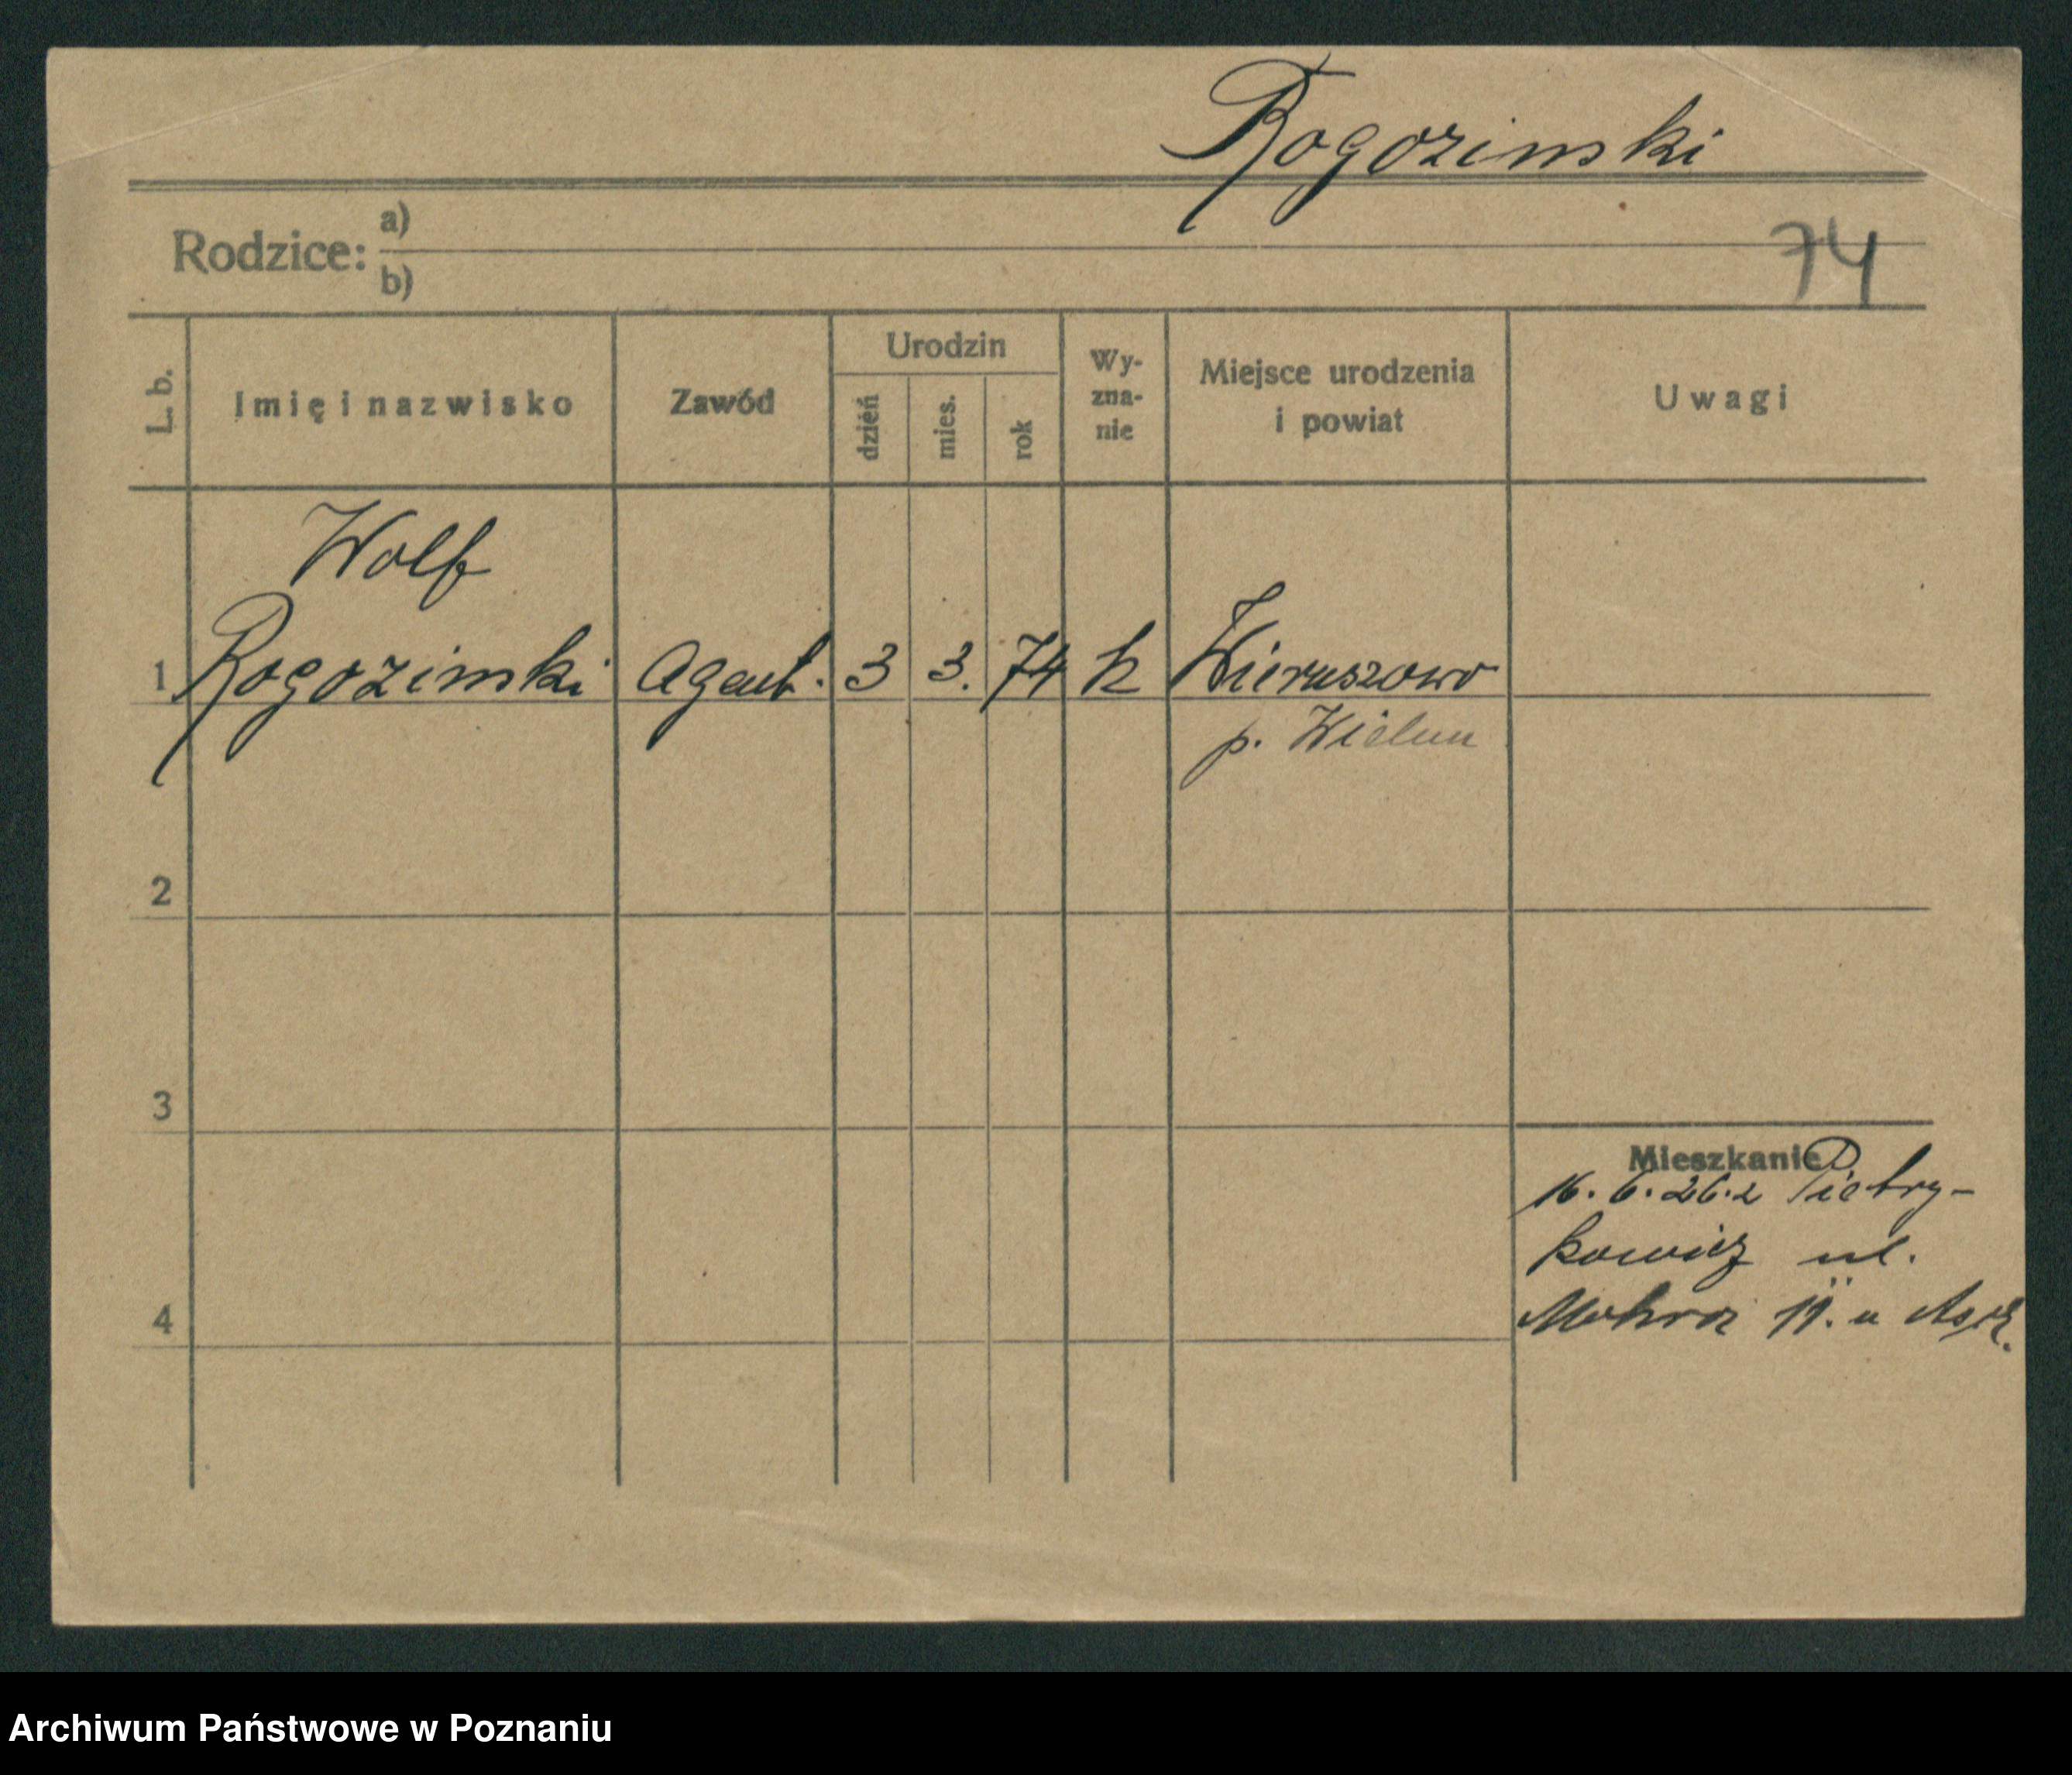 Rogozinski
Rodzice: a)
b)
74
L. b.
Imię i nazwisko
Zawód
Urodzin
dzień
mies.
rok
Wy-
zna-
nie
Miejsce urodzenia
i powiat
Uwagi
Wolf
1 Rogozinski Agent. 3 3. 74 Wieruszowo
p. Wielun
2
3
4
Mieszkanie
16. 6. 26. z Pietry-
kowicz ul.
Mokra 11. u
Archiwum Państwowe w Poznaniu